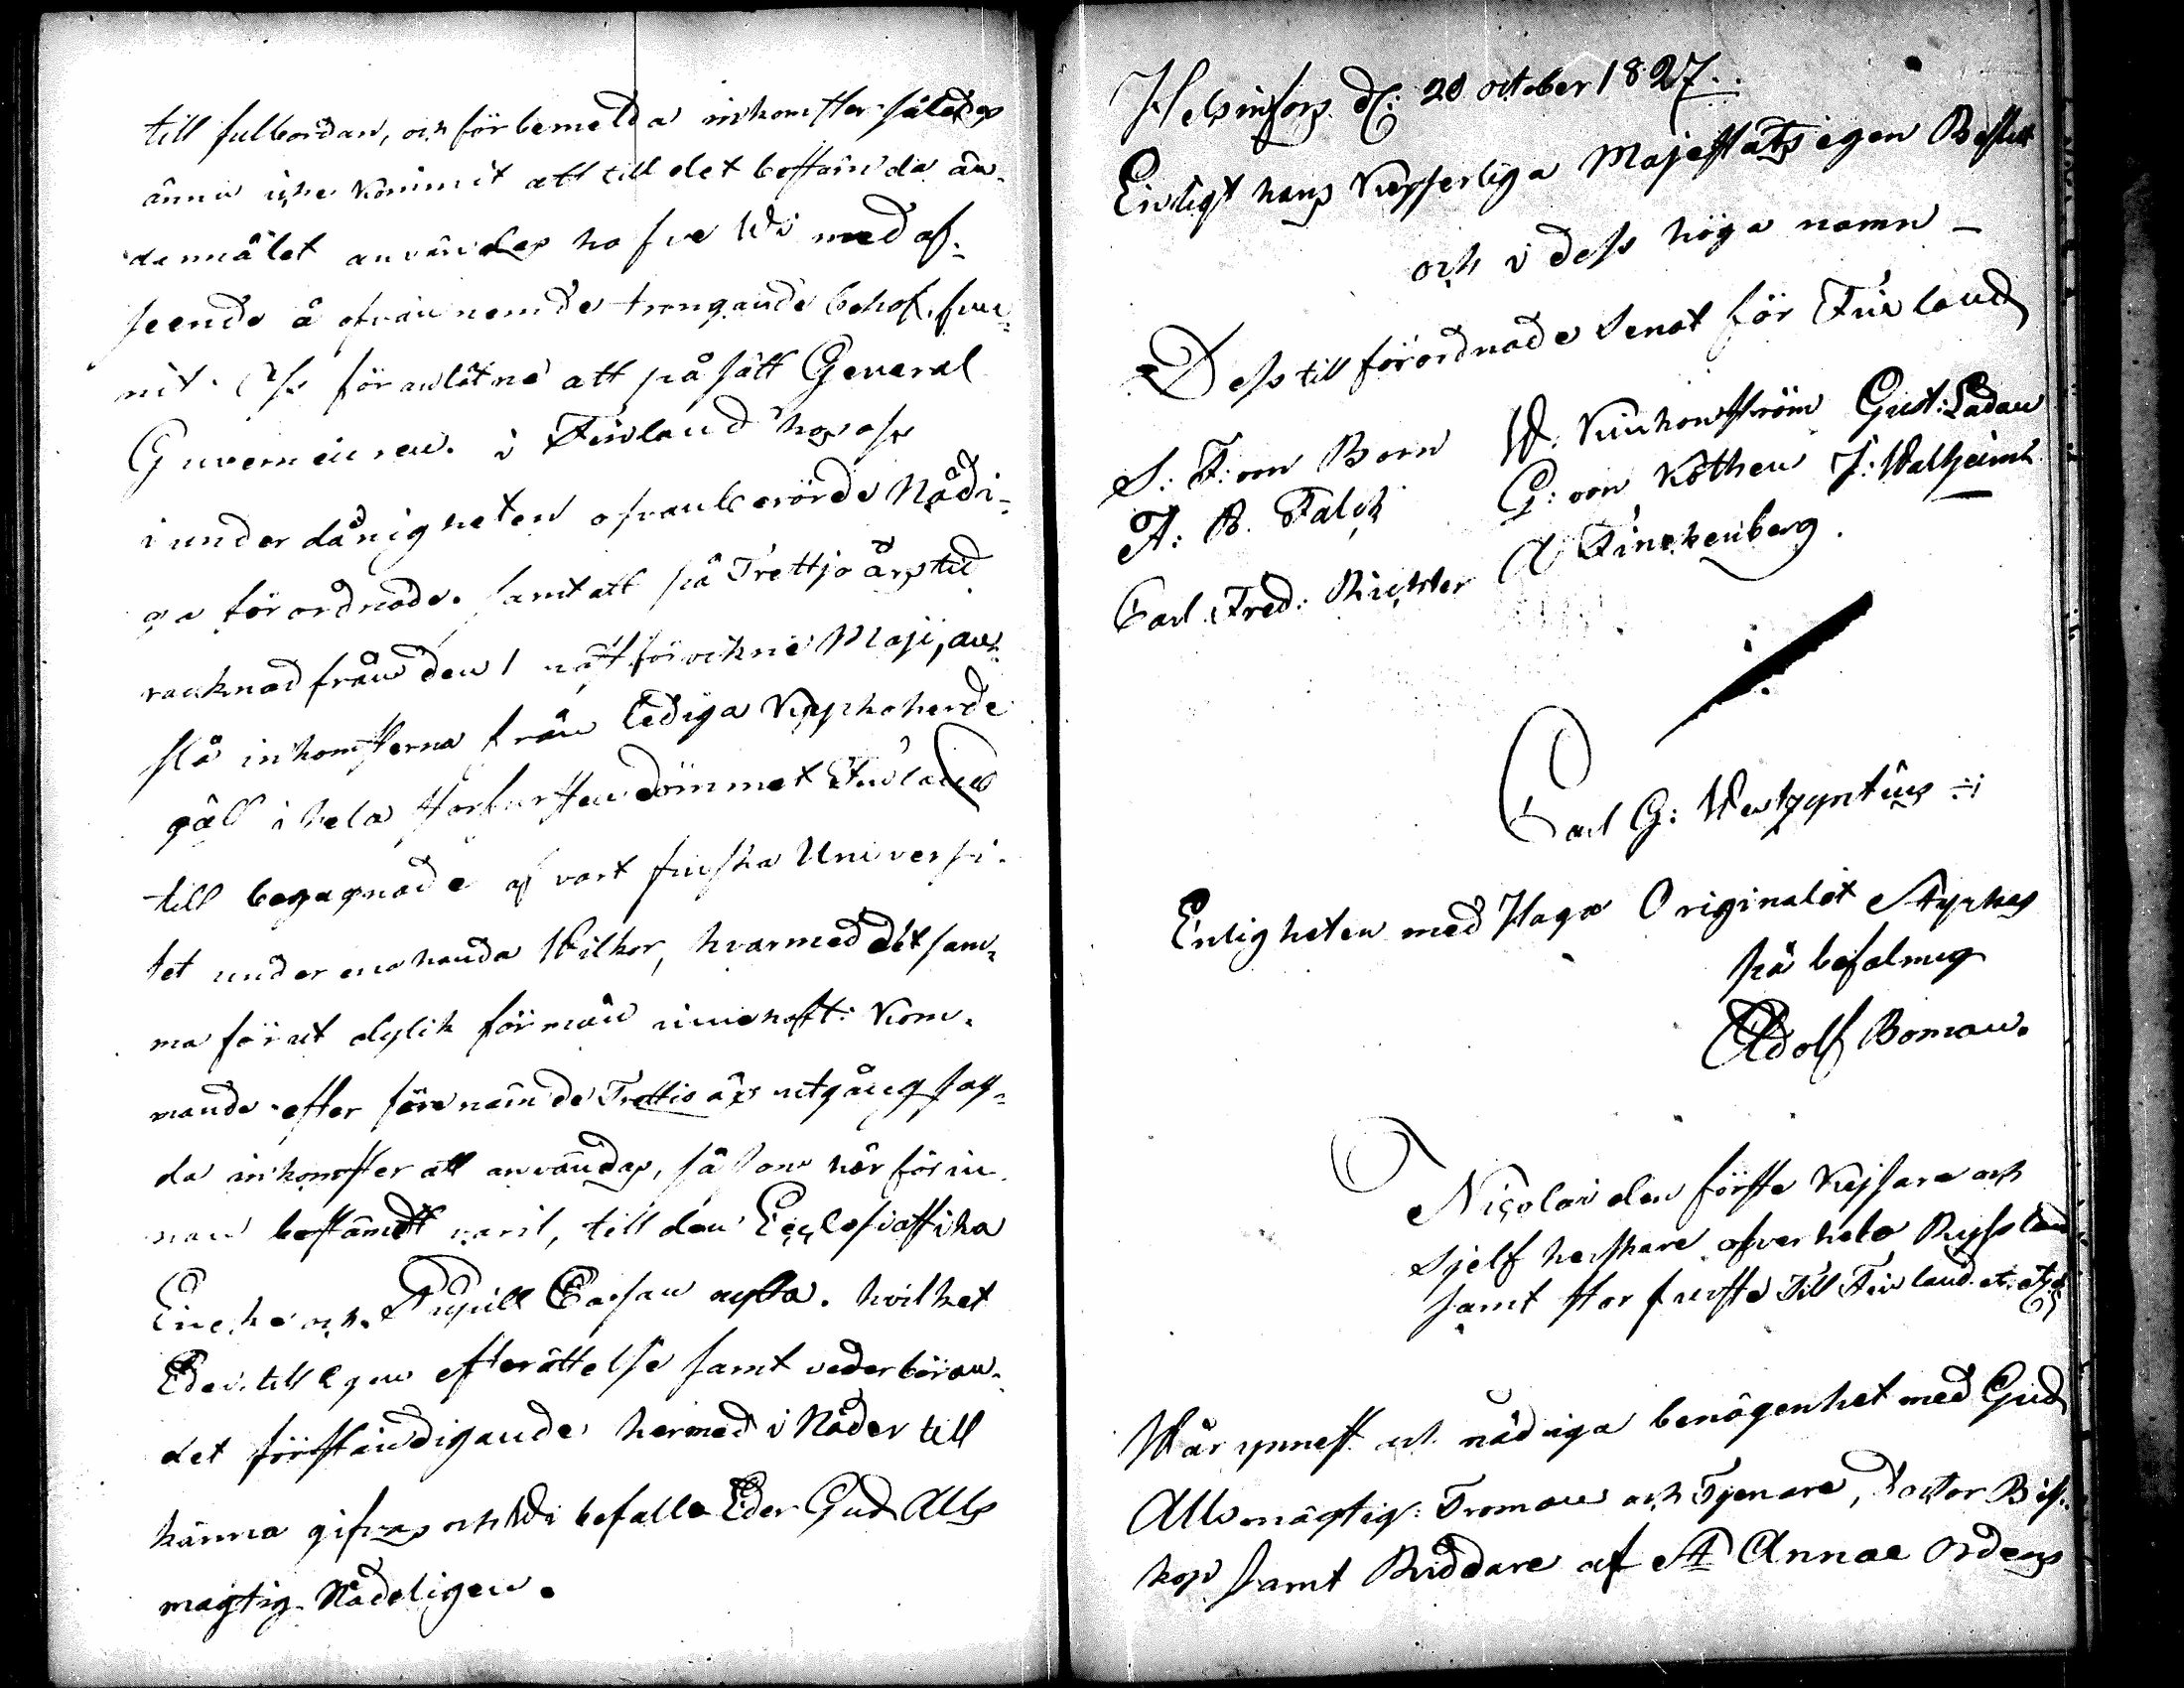 till fulbordan, och förbemelda inkomster således
ännu icke kommit att till det bestämda än-
damålet användas hafve Wi med af-
seende å ofvannemde trengande behof, fun-
nit Oss föranlåtne att på sätt General
Guverneuren i Finland hos oss
i underdånigheten ofvanberörde Nådi-
ga förordnade, samt att på Trettjo års tid
räcknad från den 1 nästförvikne Maji, an-
slå inkomsterna från lediga Kyrkoherde
gäll i hela Storfurstendömmet Finland
till begagnade af vart finska Universi-
tet under enahanda Wilkor, hvarmed det sam-
ma förut dylik förmån innehaft: Kom-
mande efter förenämde Trettio års utgång sag-
da inkomster att användas, så som här förin-
nan bestämdt varit, till den Ecclesiastika
Encke och Pupill Cassan nytta. hvilket
Eder till egen efterättelse samt vederböran-
det förständigande hermed i Nåder till
känna gifvas och Wi befalle Eder Gud Alls
mägtig Nådeligen.
Helsinfors d: 20 october 1827.
Enligt hans Kejserliga Majestäts egen Beslut
och i dess höga namn –
Dess tillförordnade Senat för Finland
S: F: von Born W: Kuhonström Gust: Ladau
A: B. Falck G: von Kothen J: Walheim
Carl Fred: Richter A Finckenberg.
Carl G: Wentzyntius
Enligheten med Höga Originalet Styrkes
på befalning
Adolf Boman.
Nicolai den förste Kejsare och
Sjelfherskare öfver hela Ryssland
samt Storfurste Till Finland etc etc
Wår ynnest och nådiga benägenhet med Gud
Allsmägtig: Troman och Tjenare, Doctor Bis-
kop samt Riddare af St Annae Ordens